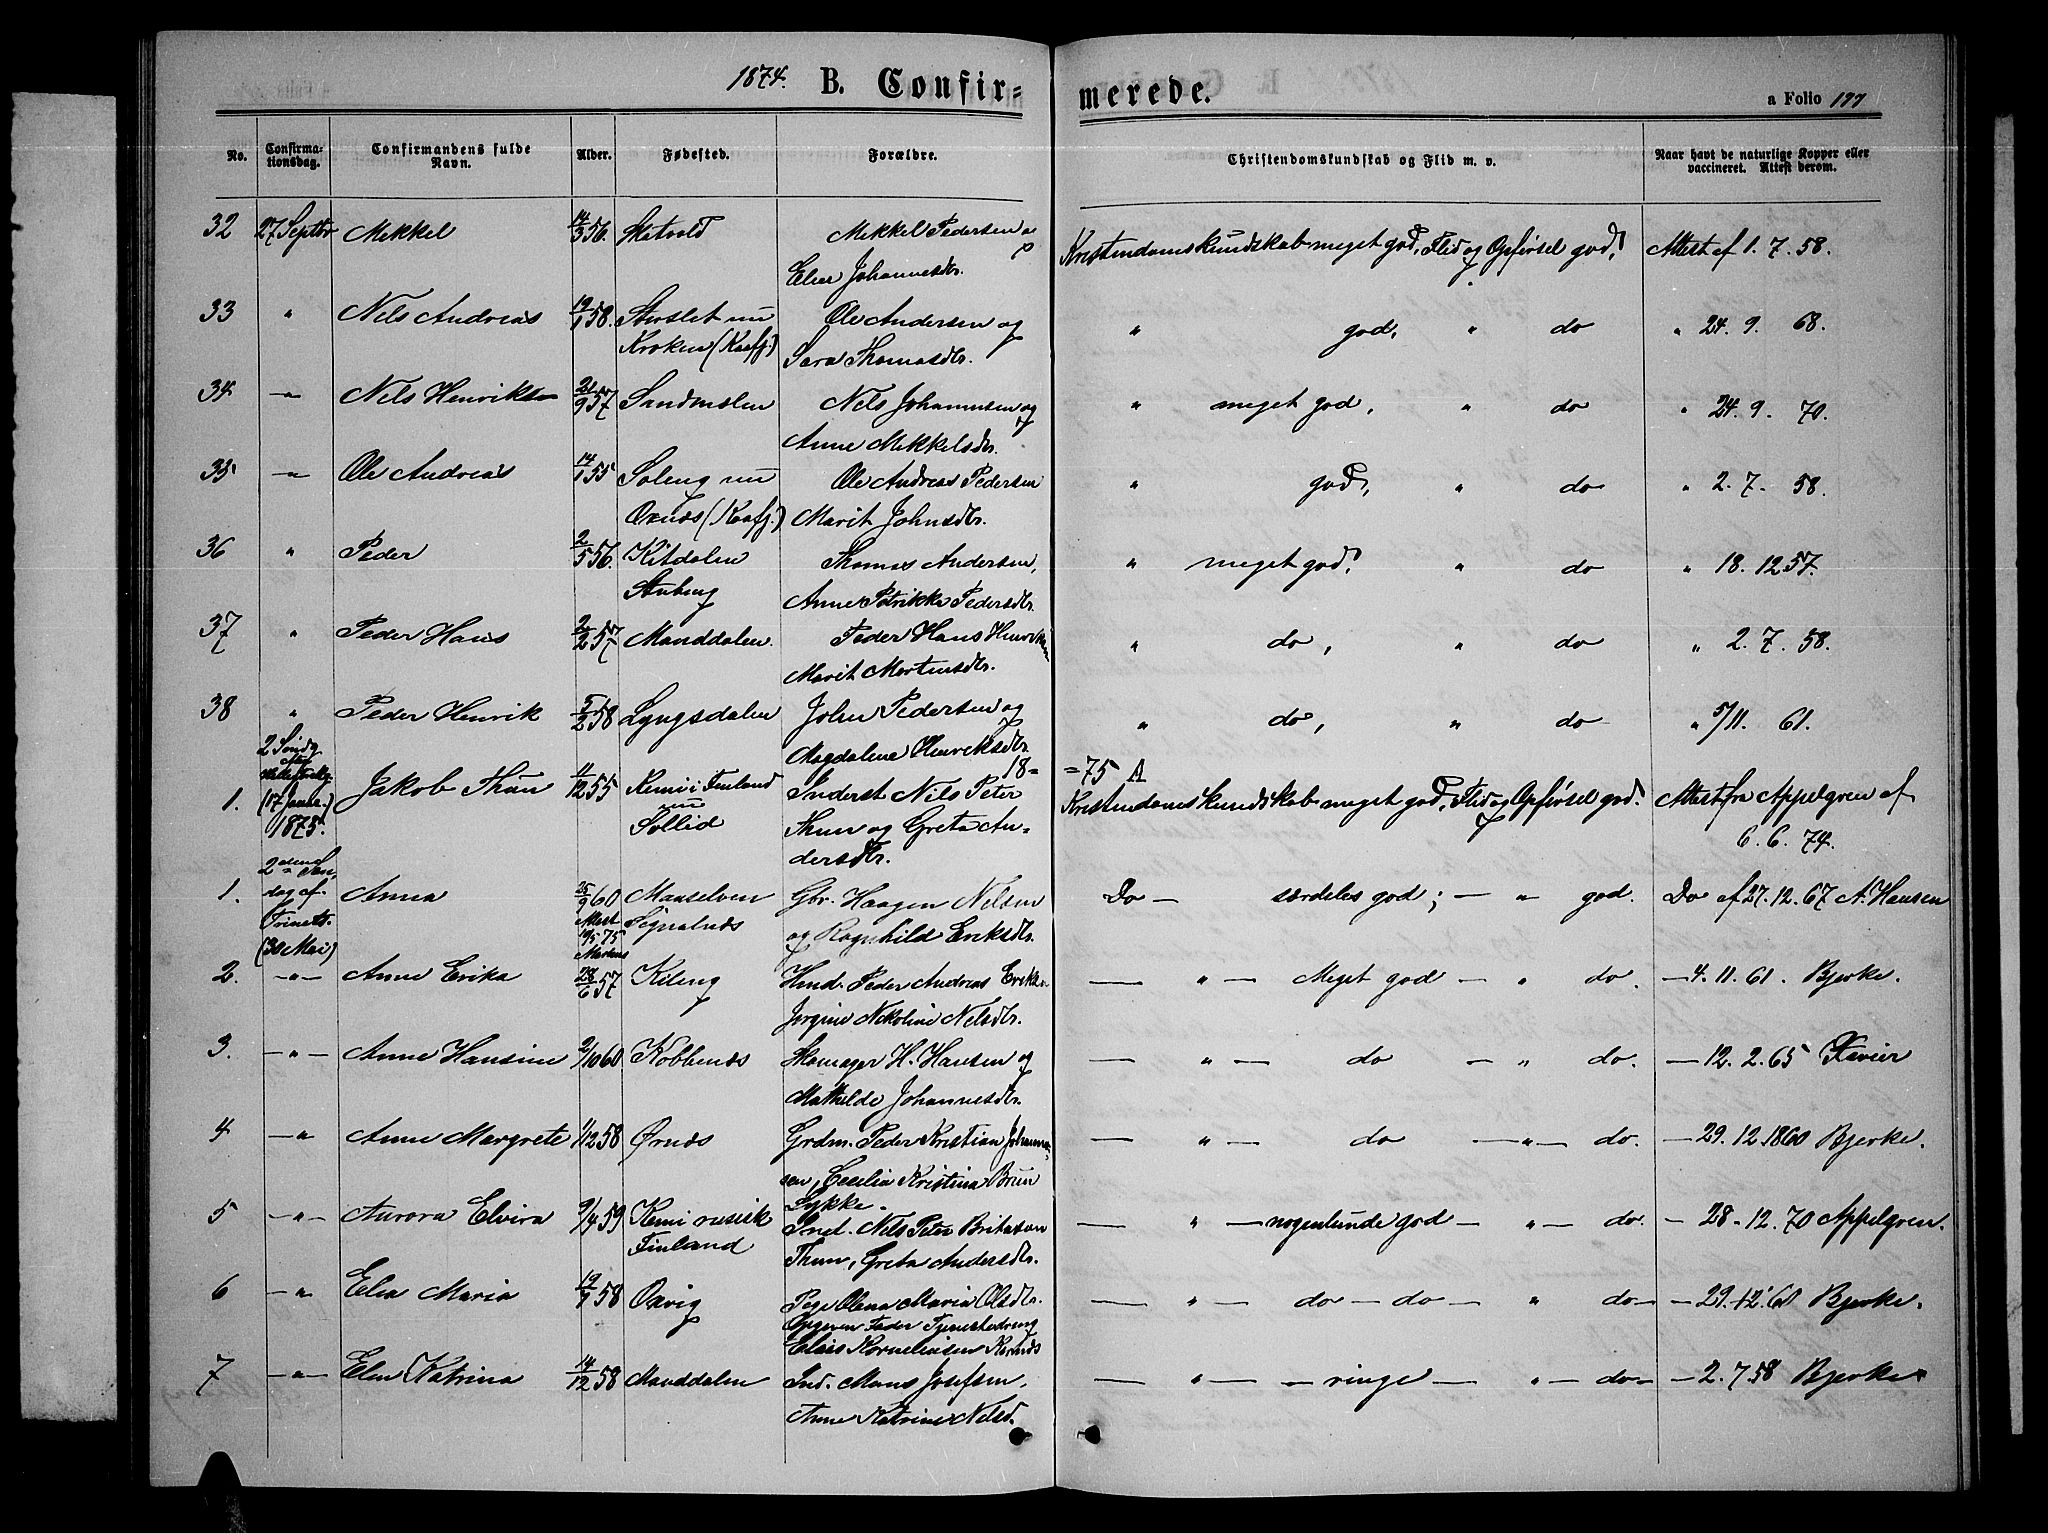 1874. B. Confir-
merede.
a Folio 197
No.
Confirma-
tionsdag.
Confirmandens fulde
Navn.
Alder.
Fødested.
Forældre.
Christendomskundskab og Flid m. v.
Naar havt de naturlige Kopper eller
vaccineret. Attest derom.
32 27 Septbr Mekkel 14/3 56. Skatvold Mekkel Pedersen o Kristendomskundskab meget god, Flid og Opførsel god. Attest af 1. 7. 58.
Elen Johannesdtr.
33 " Nels Andreas 19/1 58. Storslet nu Ole Andersen og " god, " do " 24. 9. 68.
Kroken (Kaafj.) Sara Thomasdtr.
34 -"- Nels Henrik 21/9 57 Sandmelen Nels Johannesen og " meget god, " do " 24. 9. 70.
Anne Mekkelsdtr.
35 -"- Ole Andreas 14/1 55 Soleng nu Ole Andreas Pedersen " god, " do " 2. 7. 58.
Oxnæs (Kaafj.) Marit Johnsdtr.
36 " Peder 2/5 56. Kitdalen Thomas Andersen, " meget god, " do " 18. 12 57.
Stubeng Anne Petrikke Pedersdtr.
37 " Peder Hans 2/2 57 Manddalen. Peder Hans Henriksen " do, " do " 2. 7. 58.
Marit Mortensdtr.
38 " Peder Henrik 5/2 58 Lyngsdalen John Pedersen og " do, " do " 5/11. 61.
Magdalene Henriksdtr.
18= =75 A
2 Søndg
efter
1. (17 Janua.) Jakob Thun 11/12 55 Kemi i Finland Inderst Nils Peter Kristendomskundskab meget god, Flid og Opførsel god. Attest fra Appelgren af
1875. nu Sollid Thun og Greta An- 6. 6. 74.
dersdtr.
2den Søn-
1. dag af Anna 25/9 60 Maaselven Gbr. Haagen Nelsen Do - særdeles god; - " god. Do af 27. 12. 67 A. Hansen
Trinett. Attest Signalnæs og Ragnhild Eriksdtr.
(30 Mai) 19/5 75
2. -"- Anne Erika 28/6 57 Kileng Hmd. Peder Andreas Erikss. — " — Meget god — " do. — 4. 11. 61. Bjerke.
Jørgine Nekoline Nelsdtr.
3. -"- Anne Hansine 2/10 60 Kobbenæs Skomager H. Hansen og — " — do — " do. — 12. 2. 65 Xavier
Mathilde Johannesdtr.
4 -" Anne Margrete 1/12 58 Ørnæs Grdm. Peder Kristian Johanne- — " — do —"— do. — 29. 12. 1860 Bjerke.
sen, Cecilia Kristina Brun
Lykke.
5 -"- Aurora Elvira 9/4 59 Kemi russisk Ind. Nils Peter Britason — " — nogenlunde god — " — do. — 28. 12. 70 Appelgren.
Finland Thun, Greta Andersdtr.
6 -" Elea Maria 19/7 58 Oxvig Pige Olena Maria Olsdtr. — " — do — do — " do — — 29. 12. 61 Bjerke.
Opgiven Fader Tjenestedreng
Elias Korneliusen Kornæs
7 -"- Elen Katrina 14/12 58 Manddalen Ind. Mons Josefsen, — " — — ringe — " — do — — 2. 7 58 Bjerke
Anne Katrine Nelsd.